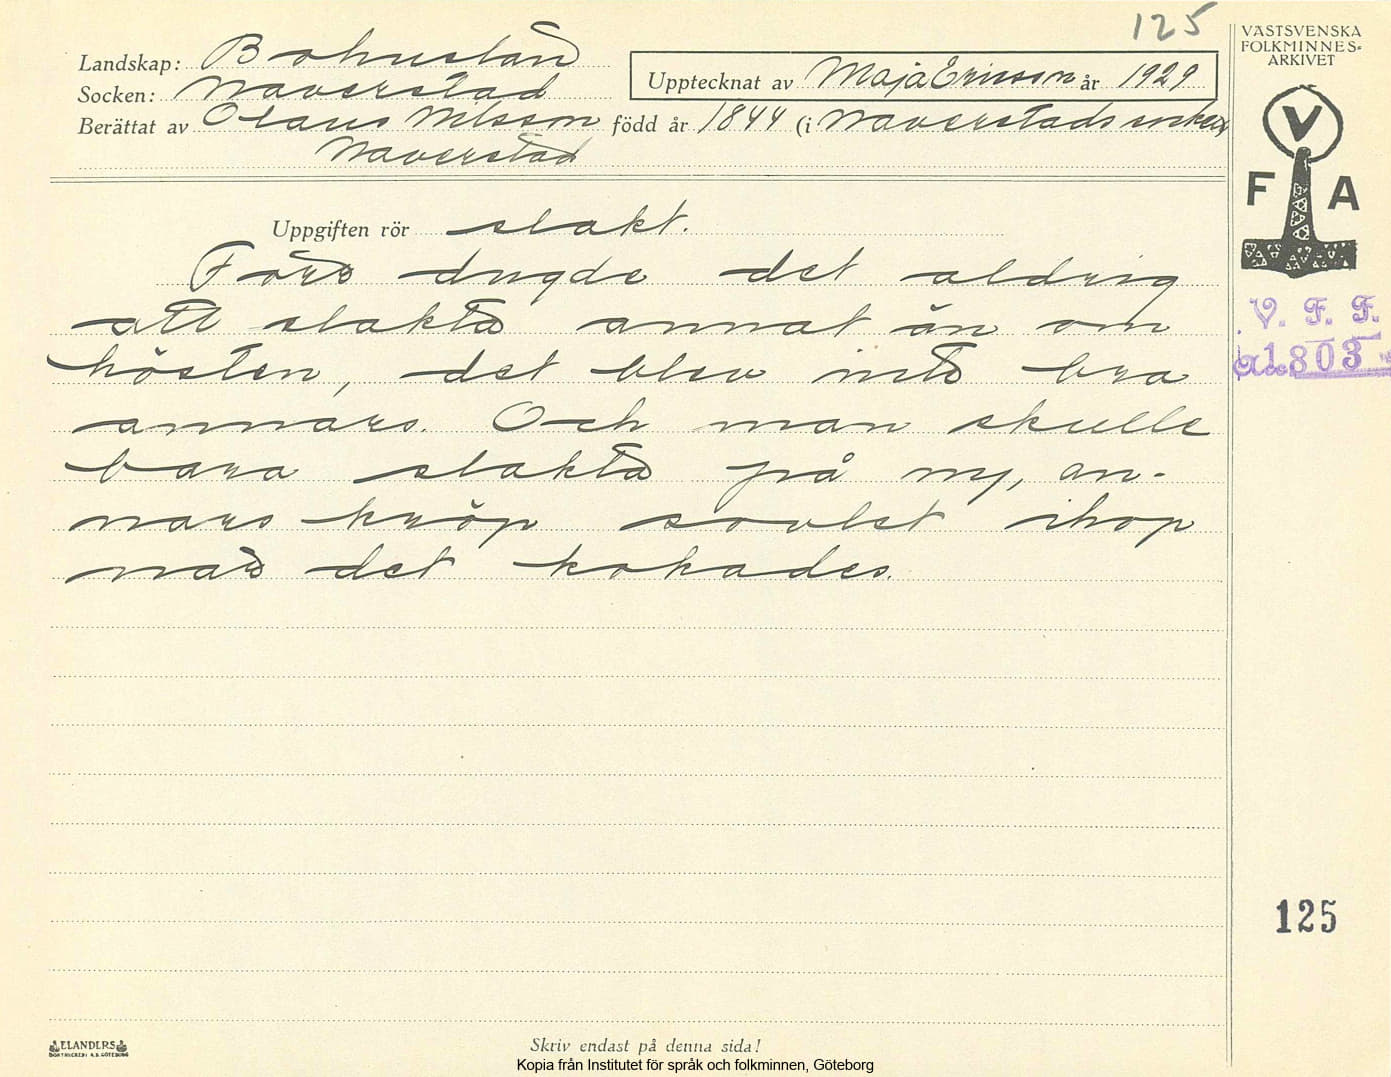 125
Landskap: Bohuslän
Socken: Naverstad
Upptecknat av Maja Ericsson år 1929
Berättat av Olaus Nilsson född år 1844 (i Naverstads socken
Naverstad
VÄSTSVENSKA
FOLKMINNES-
ARKIVET
V
F A
V. F. F.
1803
Uppgiften rör slakt.
Förr dugde det aldrig
att slakta annat än om
hösten, det blev inte bra
annars. Och man skulle
bara slakta på ny, an-
nars kröp sovlet ihop
när det kokades.
125
ELANDERS
BOKTRYCKERI A.B. GÖTEBORG
Skriv endast på denna sida!
Kopia från Institutet för språk och folkminnen, Göteborg